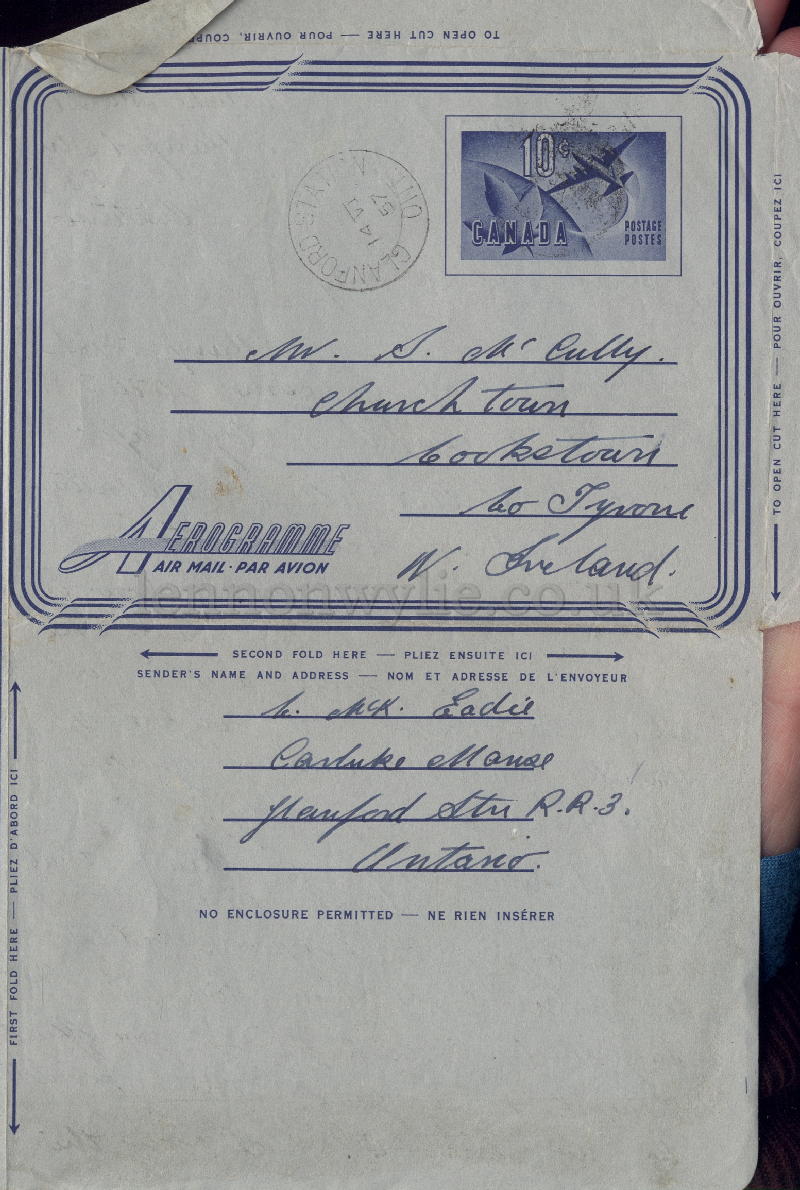 TO OPEN CUT HERE — POUR OUVRIR, COUPE
GLANFORD STATION
ONT.
14 VI
57
10¢
CANADA
POSTAGE
POSTES
Mr. S. McCully.
Church town
Cookstown
Co Tyrone
N. Ireland.
AEROGRAMME
AIR MAIL · PAR AVION
lennonwylie.co.uk
TO OPEN CUT HERE — POUR OUVRIR, COUPEZ ICI
SECOND FOLD HERE — PLIEZ ENSUITE ICI
SENDER'S NAME AND ADDRESS — NOM ET ADRESSE DE L'ENVOYEUR
C. McK. Eadie
Carluke Manse
Glanford Stn R.R.3.
Ontario.
FIRST FOLD HERE — PLIEZ D'ABORD ICI
NO ENCLOSURE PERMITTED — NE RIEN INSÉRER